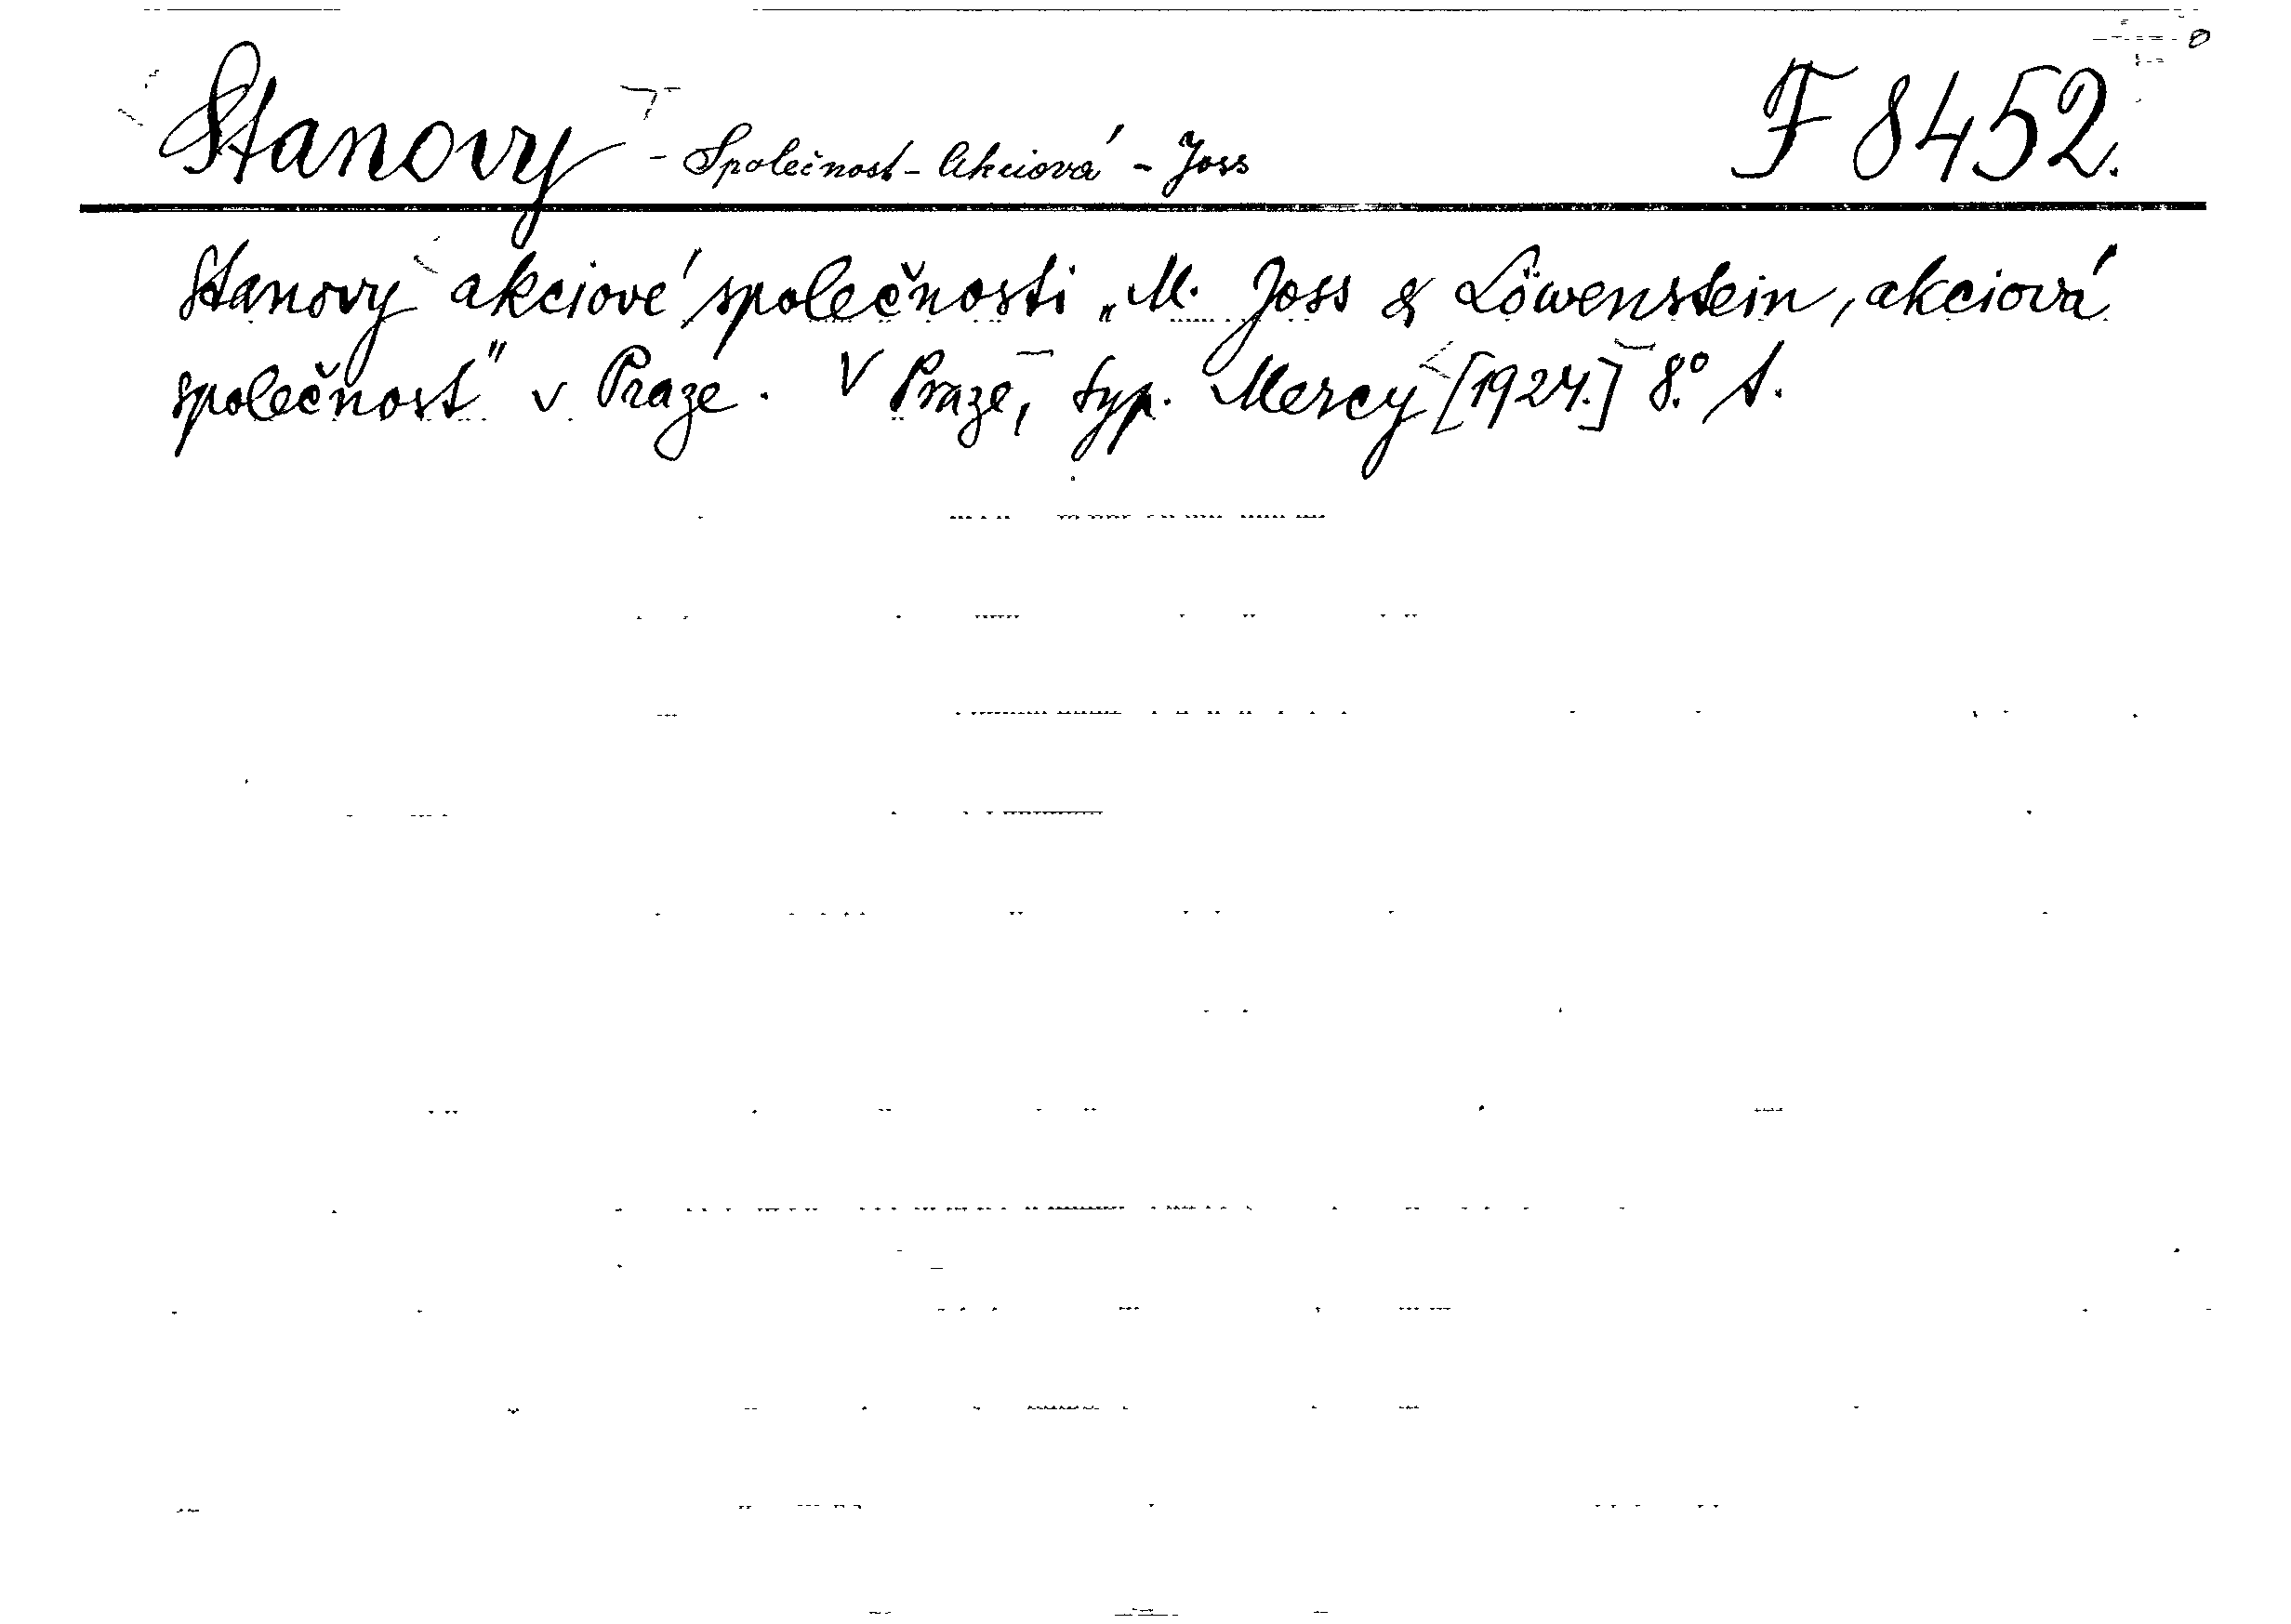 Stanovy - Společnost - Akciová - Joss F 8452.
Stanovy akciové společnosti „M. Joss & Löwenstein, akciová
společnost" v Praze. V Praze, typ. Mercy [1924.] 8.° 1.